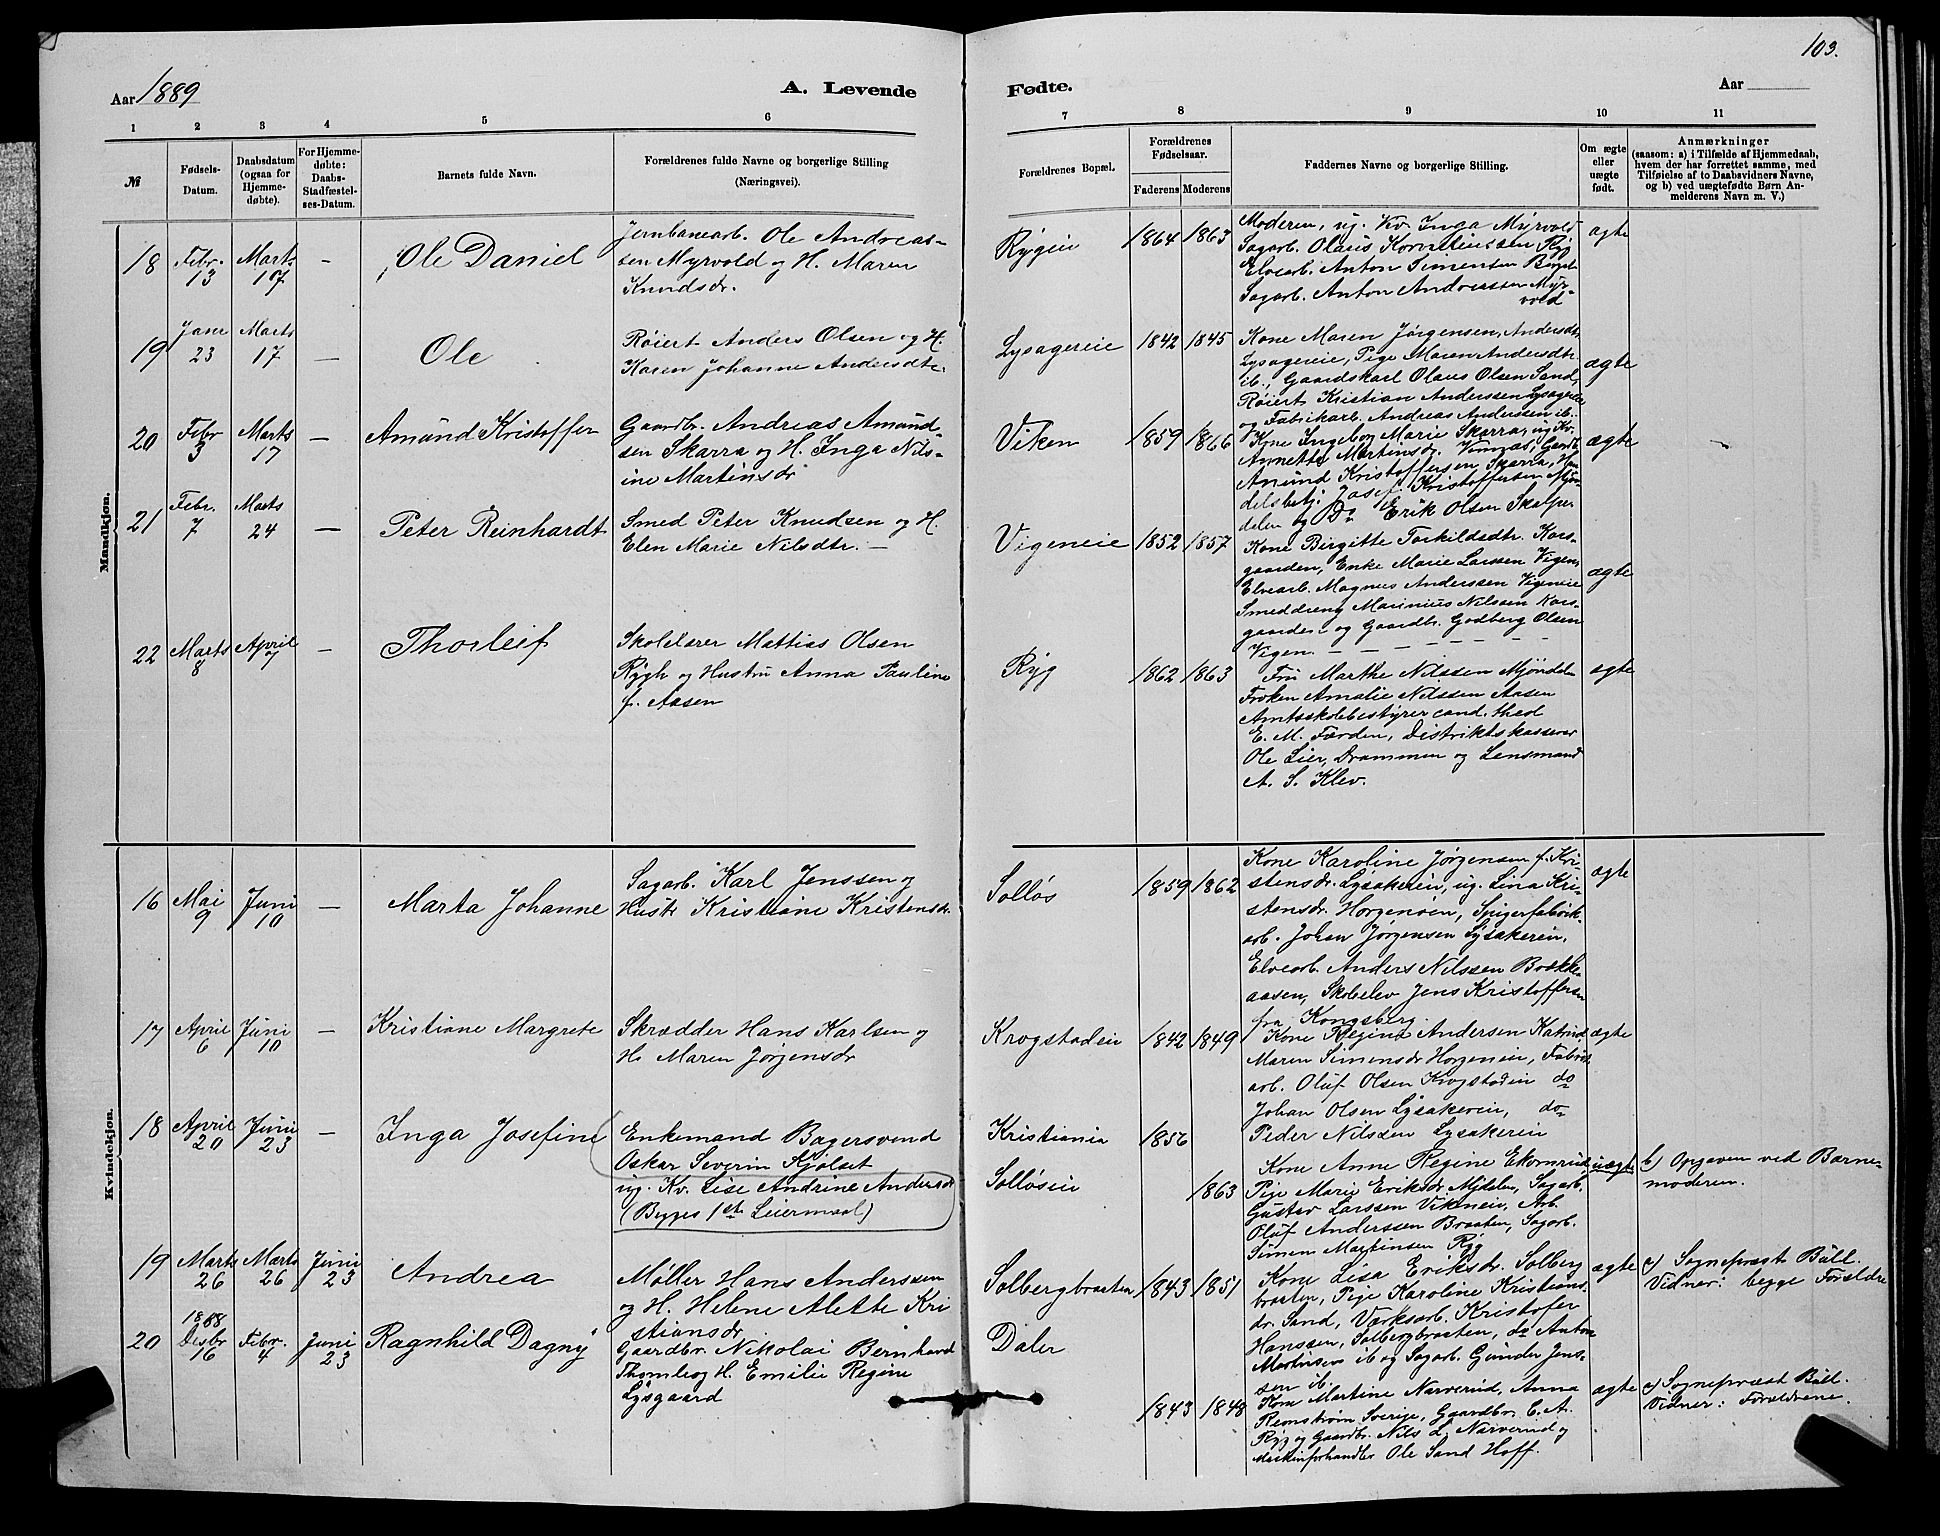 103.
Aar 1889
A. Levende
Fødte.
Aar
1 2 3 4 5 6
7 8 9 10 11
№
Fødsels-
Datum.
Daabsdatum
(ogsaa for
Hjemme-
døbte).
For Hjemme-
døbte:
Daabs-
Stadfæstel-
ses-Datum.
Barnets fulde Navn.
Forældrenes fulde Navne og borgerlige Stilling
(Næringsvei).
Forældrenes Bopæl.
Forældrenes
Fødselsaar.
Faderens Moderens
Faddernes Navne og borgerlige Stilling.
Om ægte
eller
uægte
født.
Anmærkninger
(saasom: a) i Tilfælde af Hjemmedaab,
hvem der har forrettet samme, med
Tilføielse af to Daabsvidners Navne,
og b) ved uægtefødte Børn An-
melderens Navn m. V.)
Mandkjøn.
18
Febr.
13
Marts
17
–
Ole Daniel
Jernbanearb. Ole Andreas-
sen Myrvold og H. Maren
Knudsdr.
Rygeie
1864 1863
Moderen, ug. Kv. Inga Myrvold
Sagarb. Olaus Ryg
Elvearb. Anton Simensen
Sagarb. Anton Andreassen Myr-
vold
ægte
19
Janu
23
Marts
17
–
Ole
Røiert Anders Olsen og H.
Karen Johanne Andersdtr.
Lysagereie
1842 1845
Kone Maren Jørgensen, Andersdtr.
Lysagereie, Pige Maren Andersdtr
ib., Gaardskarl Olaus Olsen Sand,
Røiert Kristian Anderssen Lysagereie
og Fabrikarb. Andreas Anderssen ib.
ægte
20
Febr
3
Marts
17
–
Amund Kristoffer
Gaardbr. Andreas Amund-
sen Skarra og H. Inga Nils-
ine Martinsdr
Viken
1859 1866
Kone Ingeborg Marie Skarra, ug Kv.
Annette Martinsdr. Gaardb.
Amund Kristoffersen Skarra, Han-
delsbetj. Josef Kristoffersen Mjøn-
dalen og Do Erik Olsen
ægte
21
Febr.
7
Marts
24
–
Peter Reinhardt
Smed Peter Knudsen og H.
Elen Marie Nilsdtr. –
Vigeneie
1852 1857
Kone Birgitte Torkildsdtr. Kors-
gaarden, Enke Marie Larssen Vigen,
Elvearb. Magnus Anderssen Vigeneie
Smeddreng Marinius Nilssen Kors-
gaarden og Gaardbr. Godberg Olsen
Vigen. – – – – –
ægte
22
Marts
8
April
7
–
Thorleif
Skolelærer Mattias Olsen
Rygh og Hustru Anna Pauline
f. Aasen
Ryg
1862 1863
Fru Marthe Nilssen Mjøndalen
Frøken Amalie Nilssen Aasen
Amtsskolebestyrer cand. theol
E. M. Færden, Distriktskasserer
Ole Lier, Drammen og Lensmand
A. S. Klev.
ægte
Kvindekjøn.
16
Mai
9
Juni
10
–
Marta Johanne
Sagarb. Karl Jenssen og
Hustr Kristiane Kristensdr.
Solløs
1859 1862
Kone Karoline Jørgensen f. Kri-
stensdr. Lysakereien, ug. Lina Kri-
stensdr. Horgenøen, Spigerfabrik-
arb. Johan Jørgensen Lysakereien,
Elvearb. Anders Nilssen Bække-
aasen, Skoleelev Jens Kristoffersen
fra Kongsberg.
ægte
17
April
6
Juni
10
–
Kristiane Margrete
Skrædder Hans Karlsen og
H. Maren Jørgensdr
Krogstadeie
1842 1849
Kone Regine Andersen
Maren Simensdr Horgeneie, Fabrik-
arb. Oluf Olsen Krogstadeie do
Johan Olsen Lysakereien, do
Peder Nilssen Lysakereien
ægte
18
April
20
Juni
23
–
Inga Josefine
Enkemand Bagersvend
Oskar Severin Kjølset
ug. Kv. Lise Andrine Andersdr
(Begges 1st Leiermaal)
Kristiania
Solløseie
1856
1863
Kone Anne Regine Ekornrud
Pige Marie Eriksdr Mjdalen, Sagarb.
Gustav Larssen Vikneie, Arb.
Oluf Anderssen Braaten, Sagarb.
Simen Martinsen Ryg
uægte
b) Opgaven ved Barne-
moderen.
19
Marts
26
Marts
26
Juni
23
Andrea
Møller Hans Anderssen
og H. Helene Alette Kri
stiansdr
Solbergbraaten
1843 1851
Kone Lisa Eriksdr. Solberg
braaten, Pige Karoline Kristians-
dr. Sand, Værksarb. Kristofer
Hanssen, Solbergbraaten, do Anton
Martinsen ib og Sagarb. Gunder Jens-
sen ib.
ægte
a) Sognepræst Bull.
Vidner: begge Forældre
20
1888
Decbr
16
Febr.
4
Juni
23
Ragnhild Dagny
Gaardbr. Nikolai Bernhard
Thomle og H. Emilie Regine
Lysgaard
Daler
1843 1848
Kone Martine Narverud, Anna
Remstrøm Sverige, Gaardbr. C. A.
Ryg og Gaardbr. Nils L. Narverud og
Maskinforhandler Ole Sand Hoff.
ægte
a) Sognepræst Bull.
Vidner: Forældrene.